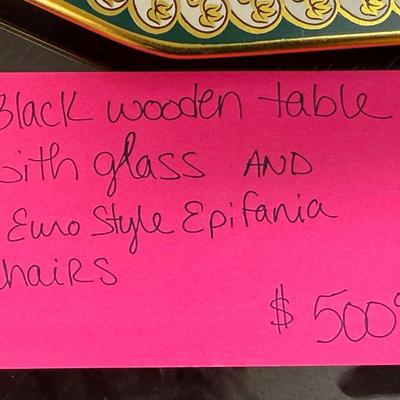 Black wooden table
with glass AND
Euro Style Epifania
chairs
$ 500